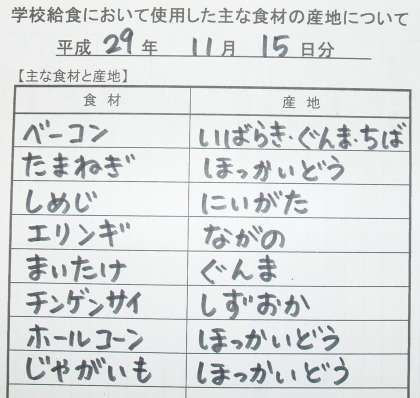 学校給食において使用した主な食材の産地について
平成 29 年 11 月 15 日分
【主な食材と産地】
食材 産地
ベーコン いばらき・ぐんま・ちば
たまねぎ ほっかいどう
しめじ にいがた
エリンギ ながの
まいたけ ぐんま
チンゲンサイ しずおか
ホールコーン ほっかいどう
じゃがいも ほっかいどう